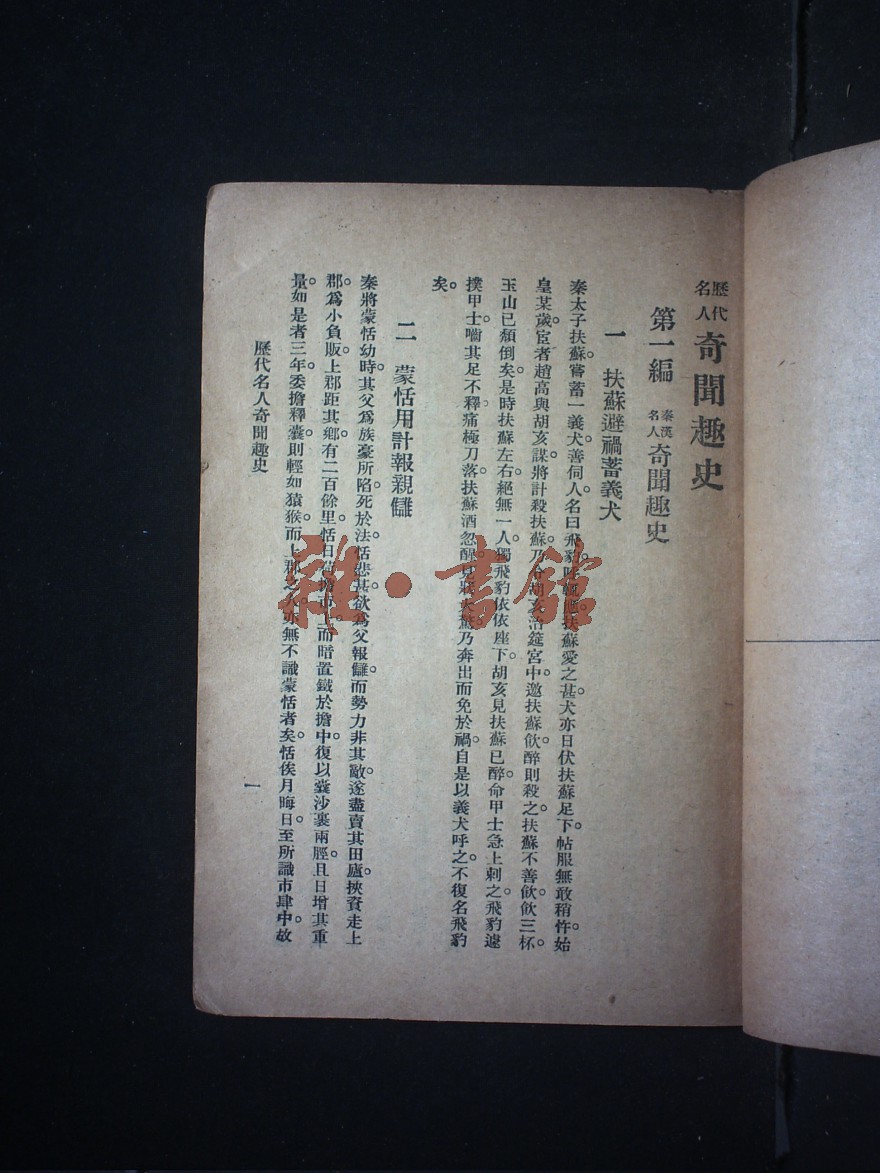 歷代名人奇聞趣史
第一編 秦漢名人奇聞趣史
一 扶蘇避禍蓄義犬
秦太子扶蘇嘗蓄一義犬。善伺人名曰飛豹。呼輒應。扶蘇愛之甚。犬亦日伏扶蘇足下。帖服無敢稍忤。始
皇某歲。宦者趙高與胡亥謀將計殺扶蘇。乃令胡亥治筵宮中。邀扶蘇飲。醉則殺之。扶蘇不善飲。飲三杯。
玉山已頹倒矣。是時扶蘇左右。絕無一人。獨飛豹依依座下。胡亥見扶蘇已醉。命甲士急上刺之。飛豹遽
撲甲士。嚙其足不釋。痛極刀落。扶蘇酒忽醒。見狀大驚。乃奔出而免於禍。自是以義犬呼之。不復名飛豹
矣。
二 蒙恬用計報親讎
秦將蒙恬幼時。其父爲族豪所陷。死於法。恬悲甚。欲爲父報讎。而勢力非其敵。遂盡賣其田廬。挾資走上
郡。爲小負販。上郡距其鄉有二百餘里。恬日荷擔市上。而暗置鐵於擔中。復以囊沙裹兩脛。且日增其重
量。如是者三年。委擔釋囊。則輕如猿猴。而上郡之人。亦無不識蒙恬者矣。恬俟月晦日。至所識市肆中。故
歷代名人奇聞趣史
一
雜·書館